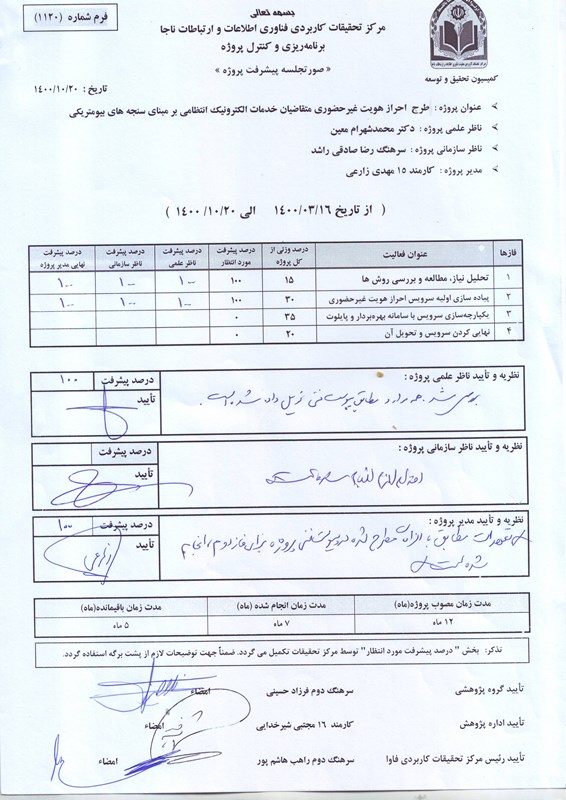 بسمه تعالی
مرکز تحقیقات کاربردی فناوری اطلاعات و ارتباطات ناجا
برنامه‌ریزی و کنترل پروژه
« صورتجلسه پیشرفت پروژه »
فرم شماره (۱۱۲۰)
کمیسیون تحقیق و توسعه
تاریخ : ۱۴۰۰/۱۰/۲۰
عنوان پروژه : طرح احراز هویت غیرحضوری متقاضیان خدمات الکترونیک انتظامی بر مبنای سنجه های بیومتریکی
ناظر علمی پروژه : دکتر محمدشهرام معین
ناظر سازمانی پروژه : سرهنگ رضا صادقی راشد
مدیر پروژه : کارمند ۱۵ مهدی زارعی
( از تاریخ ۱۴۰۰/۰۳/۱۶ الی ۱۴۰۰/۱۰/۲۰ )
فازها عنوان فعالیت درصد وزنی از کل پروژه درصد پیشرفت مورد انتظار درصد پیشرفت ناظر علمی درصد پیشرفت ناظر سازمانی درصد پیشرفت نهایی مدیر پروژه
۱ تحلیل نیاز، مطالعه و بررسی روش ها ۱۵ ۱۰۰ ۱۰۰ ۱۰۰ ۱۰۰
۲ پیاده سازی اولیه سرویس احراز هویت غیرحضوری ۳۰ ۱۰۰ ۱۰۰ ۱۰۰ ۱۰۰
۳ یکپارچه‌سازی سرویس با سامانه بهره‌بردار و پایلوت ۳۵ ۰
۴ نهایی کردن سرویس و تحویل آن ۲۰ ۰
نظریه و تأیید ناظر علمی پروژه : درصد پیشرفت ۱۰۰
تأیید
بررسی شد.
نظریه و تأیید ناظر سازمانی پروژه : درصد پیشرفت
تأیید
نظریه و تأیید مدیر پروژه : درصد پیشرفت ۱۰۰
تأیید
زارعی
شده است
مدت زمان مصوب پروژه(ماه) مدت زمان انجام شده (ماه) مدت زمان باقیمانده(ماه)
۱۲ ماه ۷ ماه ۵ ماه
تذکر: بخش "درصد پیشرفت مورد انتظار" توسط مرکز تحقیقات تکمیل می گردد. ضمناً جهت توضیحات لازم از پشت برگه استفاده گردد.
تأیید گروه پژوهشی سرهنگ دوم فرزاد حسینی امضاء
تأیید اداره پژوهش کارمند ۱۶ مجتبی شیرخدایی امضاء
تأیید رئیس مرکز تحقیقات کاربردی فاوا سرهنگ دوم راهب هاشم پور امضاء